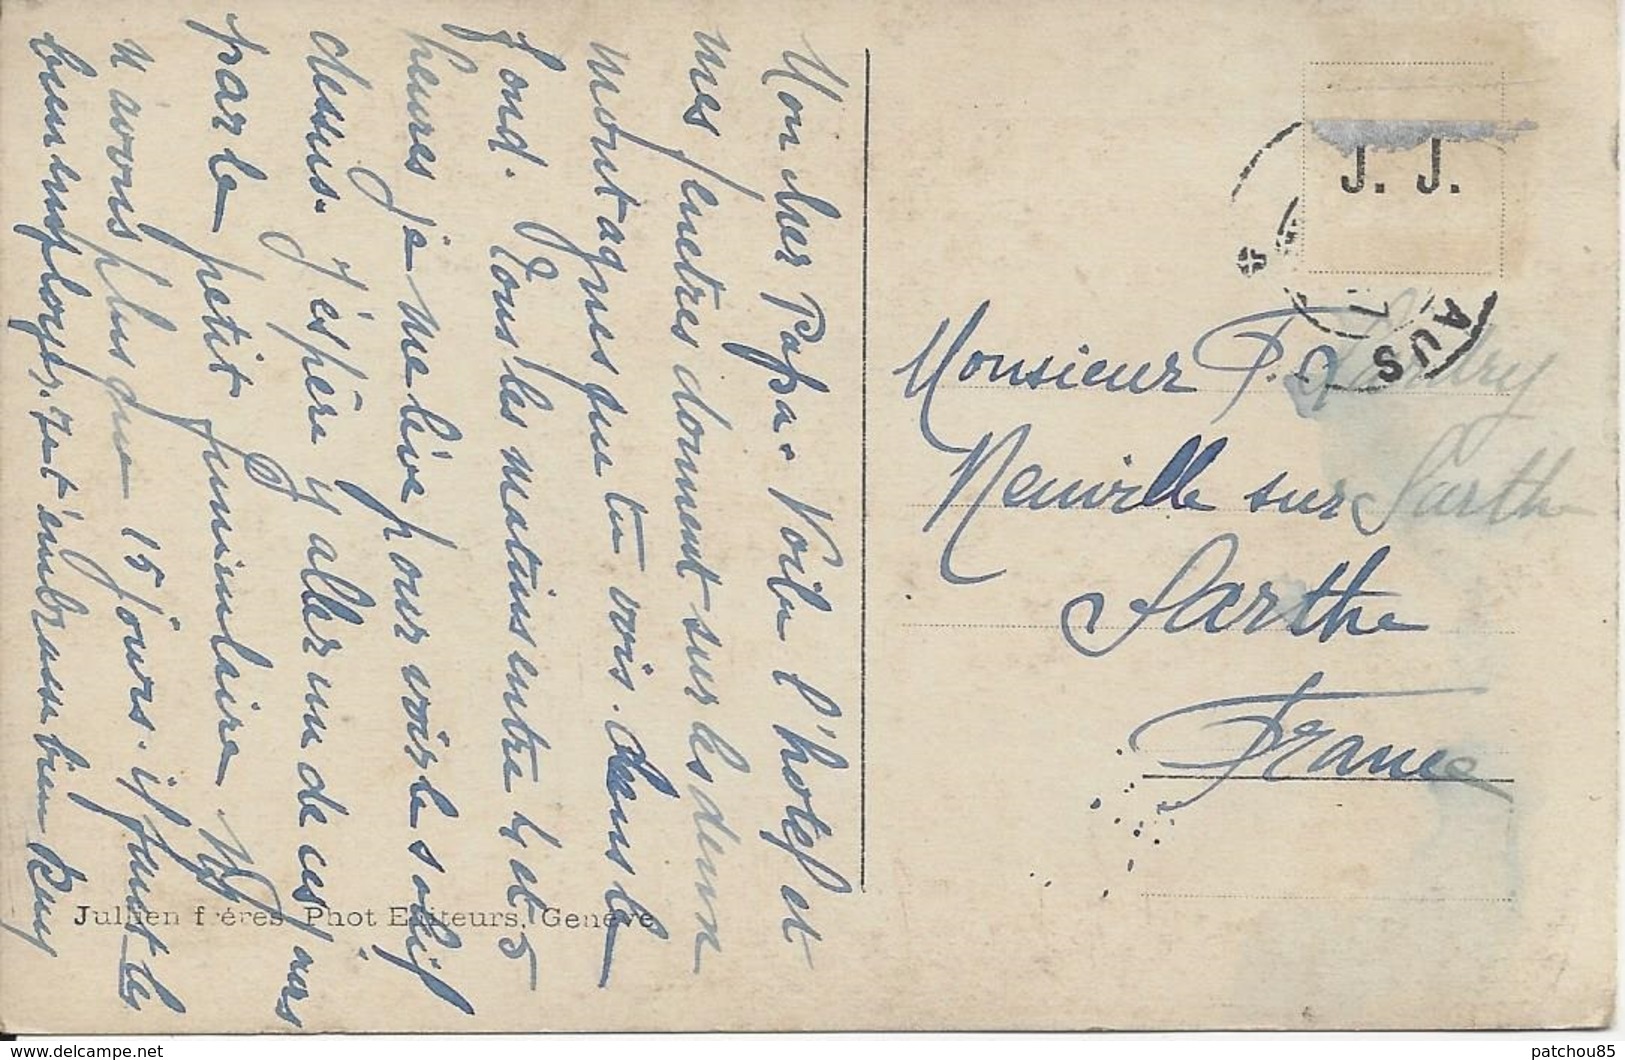 Mon cher Papa. Voila l'hotel et
mes fenetres donnent sur les deux
montagnes que tu vois dans le
fond. Tous les matins entre 4 et 5
heures je me lève pour voir le soleil
dessus. J'éspère y aller un de ces jours
par le petit funiculaire. Nous
n'avons plus que 15 jours. il faut les
bien employer. Je t'embrasse bien
J. J.
AUS
Monsieur P. Landry
Neuville sur Sarthe
Sarthe
France
Jullien frères Phot Editeurs, Genève
patchou85